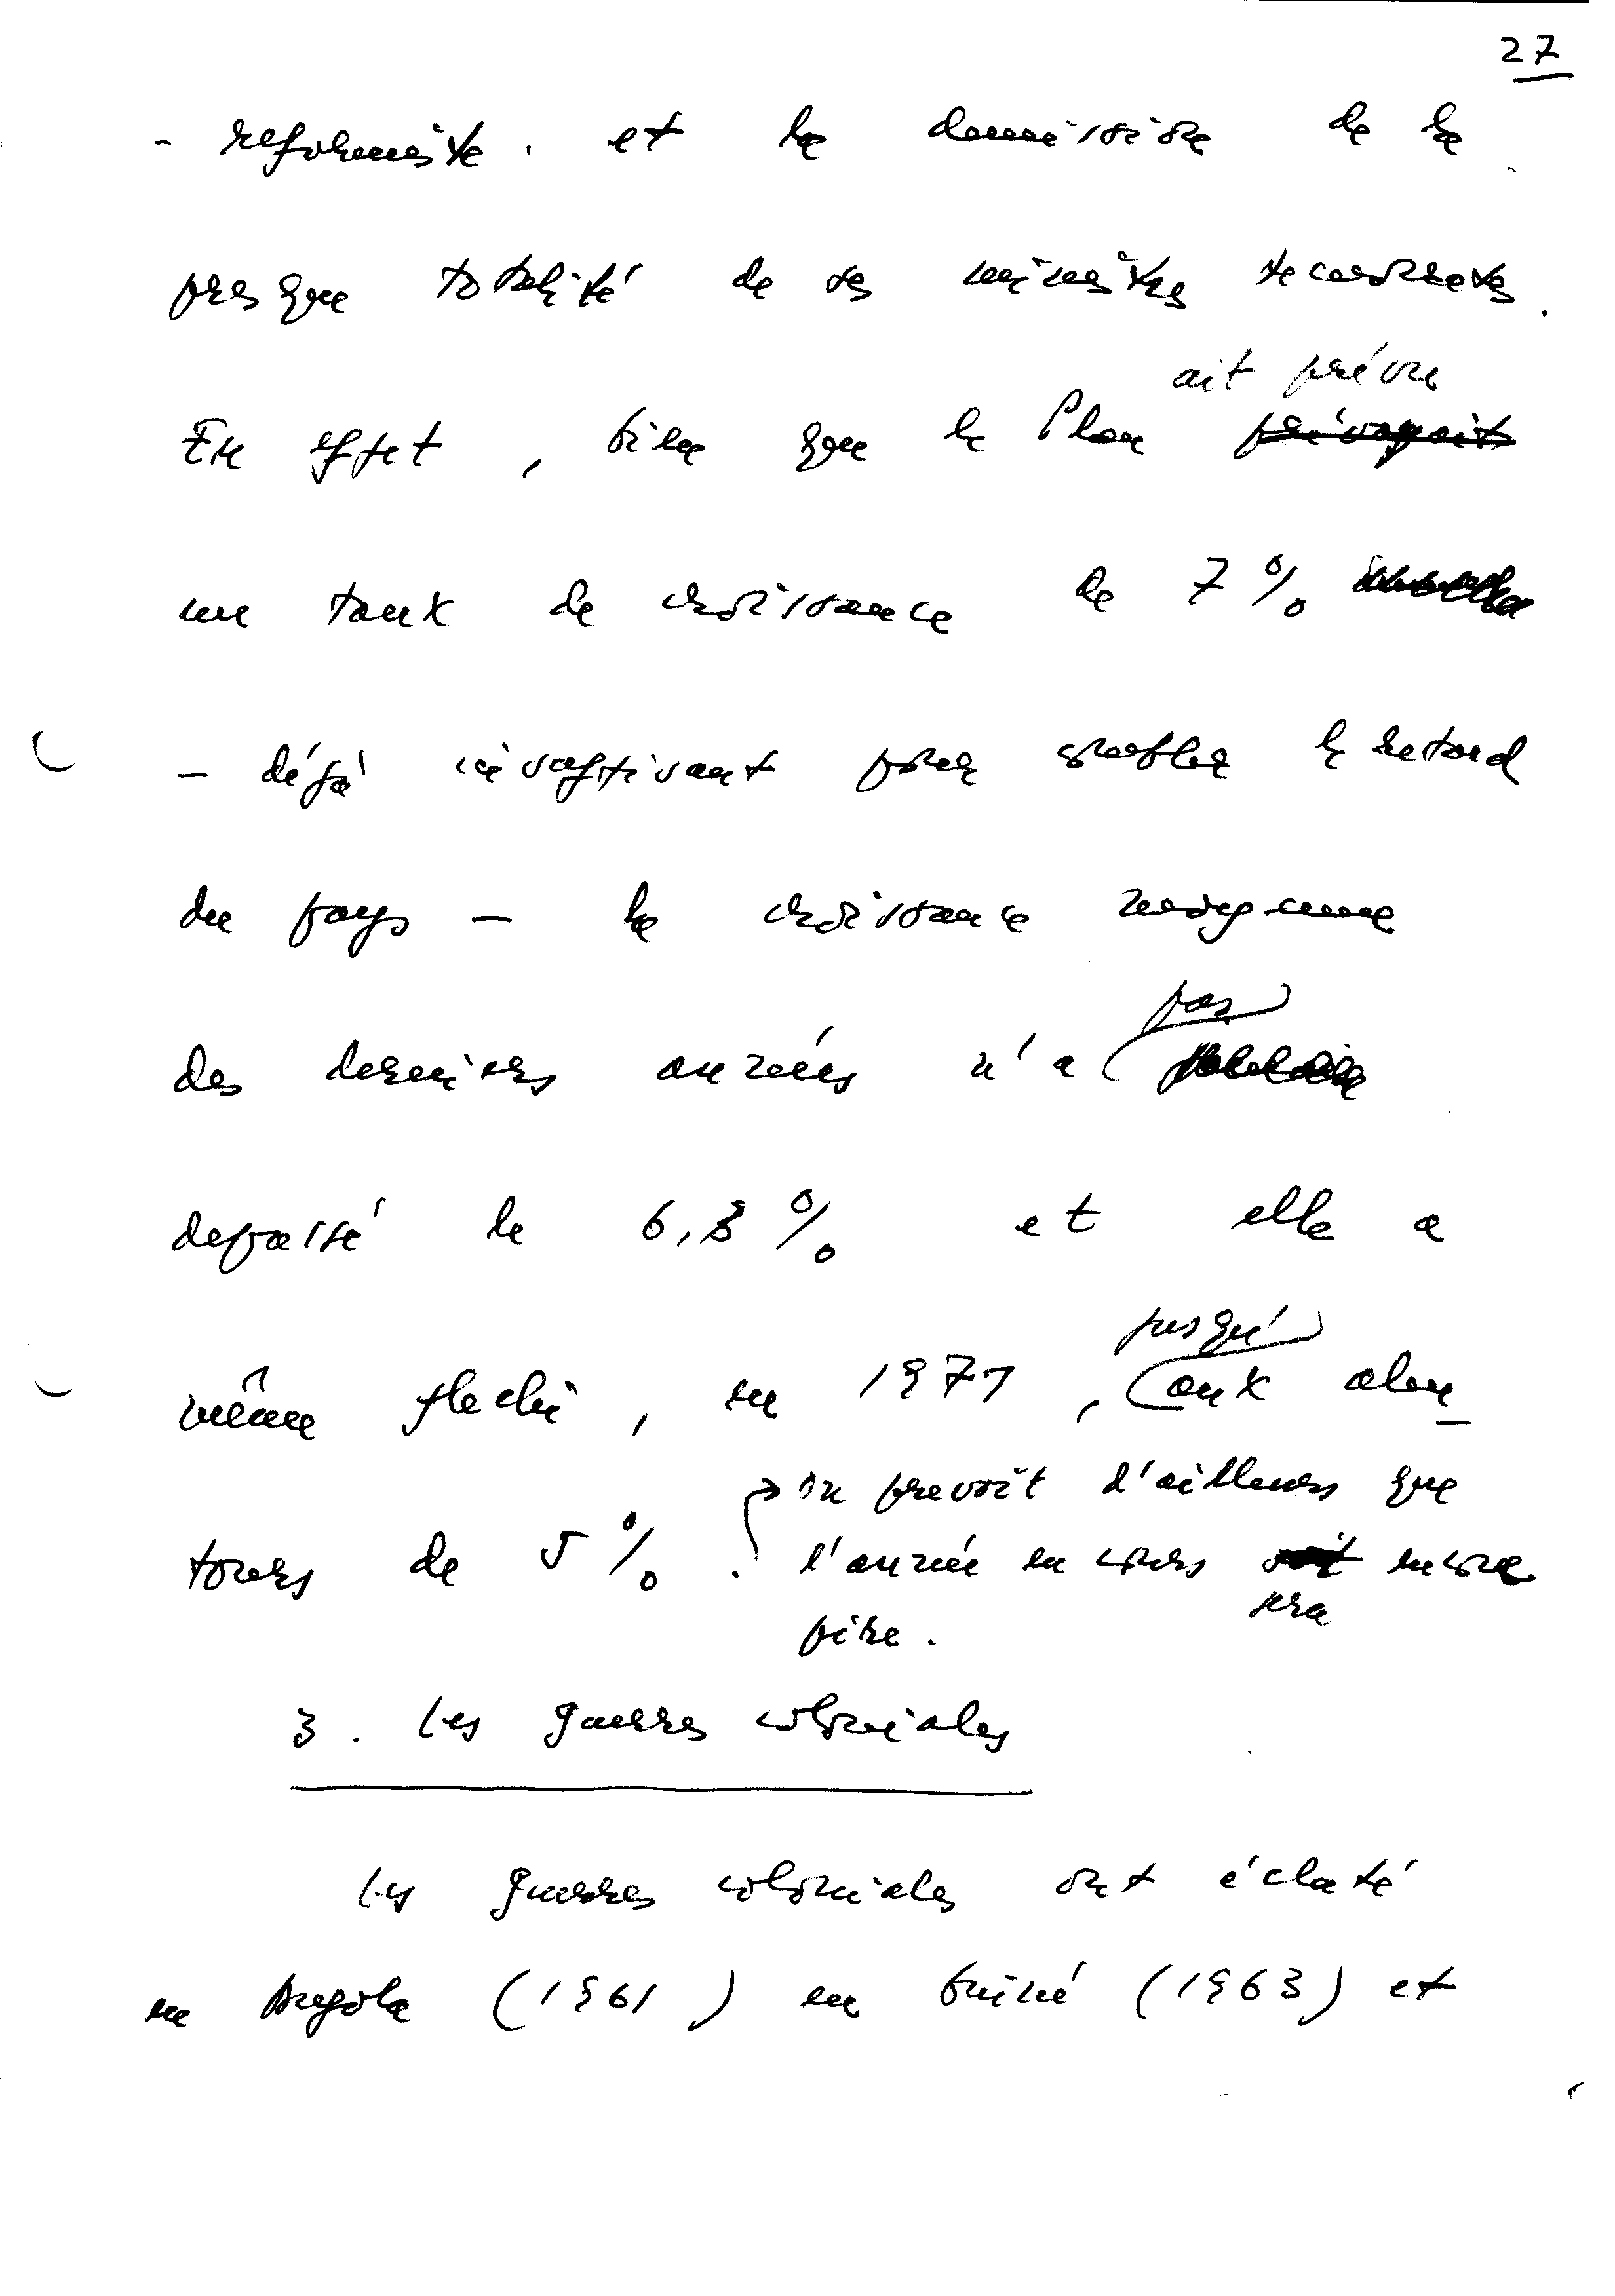 27
- reformiste. et la demission de la
presque totalité de ses ministres tecnocrates.
ait prévu
En effet, bien que le Plan prévoyait
un taux de croissance de 7%
- déjà insuffisant pour combler le retard
du pays - la croissance moyenne
pas
des derniers années n'a
depassé le 6,3% et elle a
jusqu'
même flechi, en 1971, aux alen-
on prevoit d'ailleurs que
tours de 5%. l'année en cours soit encore
sera
pire.
3. Les guerres coloniales
Les guerres coloniales ont éclaté
en Angola (1961) en Guiné (1963) et